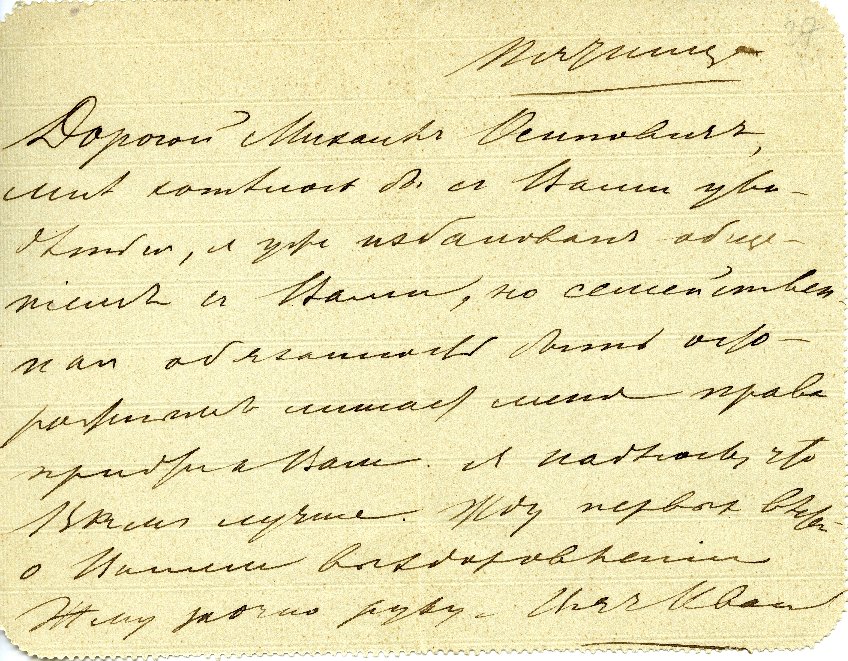 Пятница
Дорогой Михаилъ Осиповичъ,
мнѣ хотѣлось бы съ Вами уви-
дѣться, я уже избалованъ обще-
ніемъ съ Вами, но семействен-
ная обязанность быть осто-
рожнымъ лишаетъ меня права
придти къ Вамъ. Я надѣюсь, что
Вамъ лучше. Жду первыхъ вѣстей
о Вашемъ выздоровленіи
Жму заочно руку.